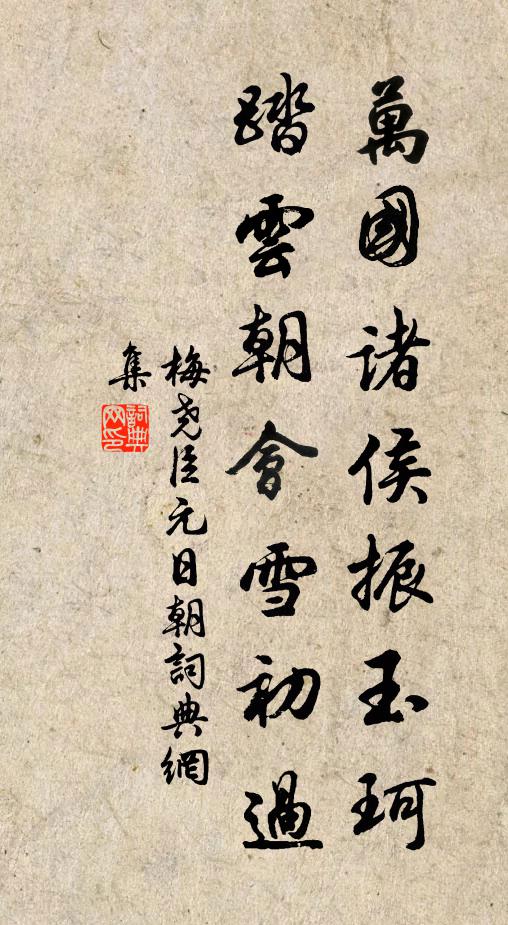 萬國諸侯振玉珂
踏雲朝會雪初過
梅堯臣元日朝詞典網
集
詞典網印